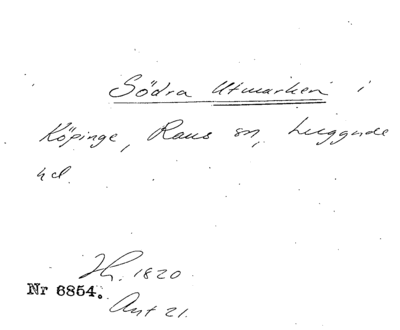 Södra Utmarken i
Köpinge, Raus sn, Luggude
hd.
Hh. 1820
Nr 6854.
Ant 21.